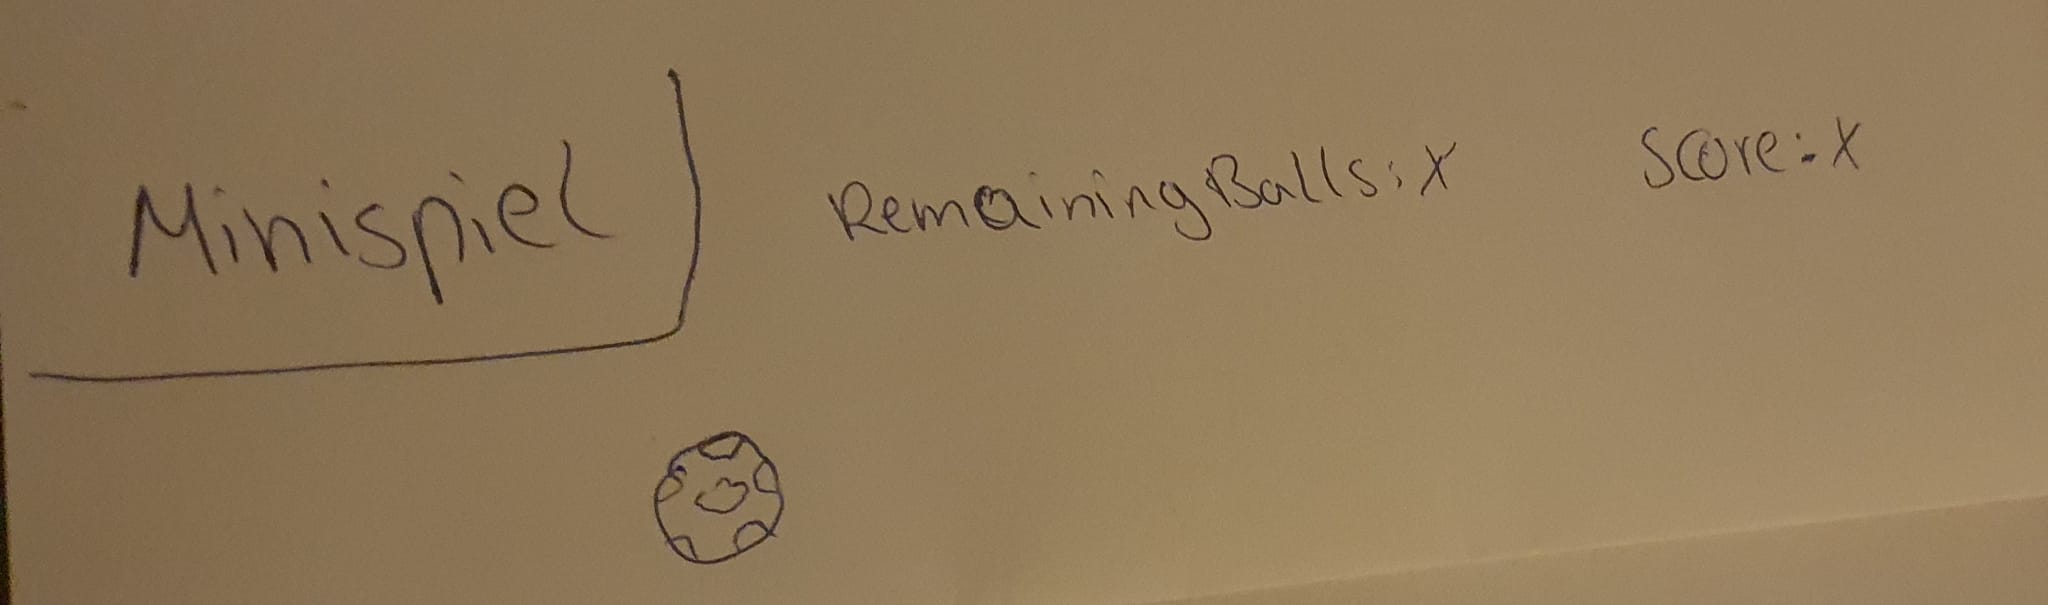 Minispiel
Remaining Balls: X
Score: X